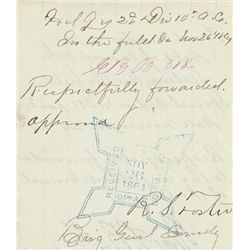 Hd Qrs 2d Div 10th A.C.
In the field Va Nov 26th 64
318.
Respectfully forwarded
approved
RECEIVED
NOV
26
1864
R. S. Foster
Brig Genl Comdg